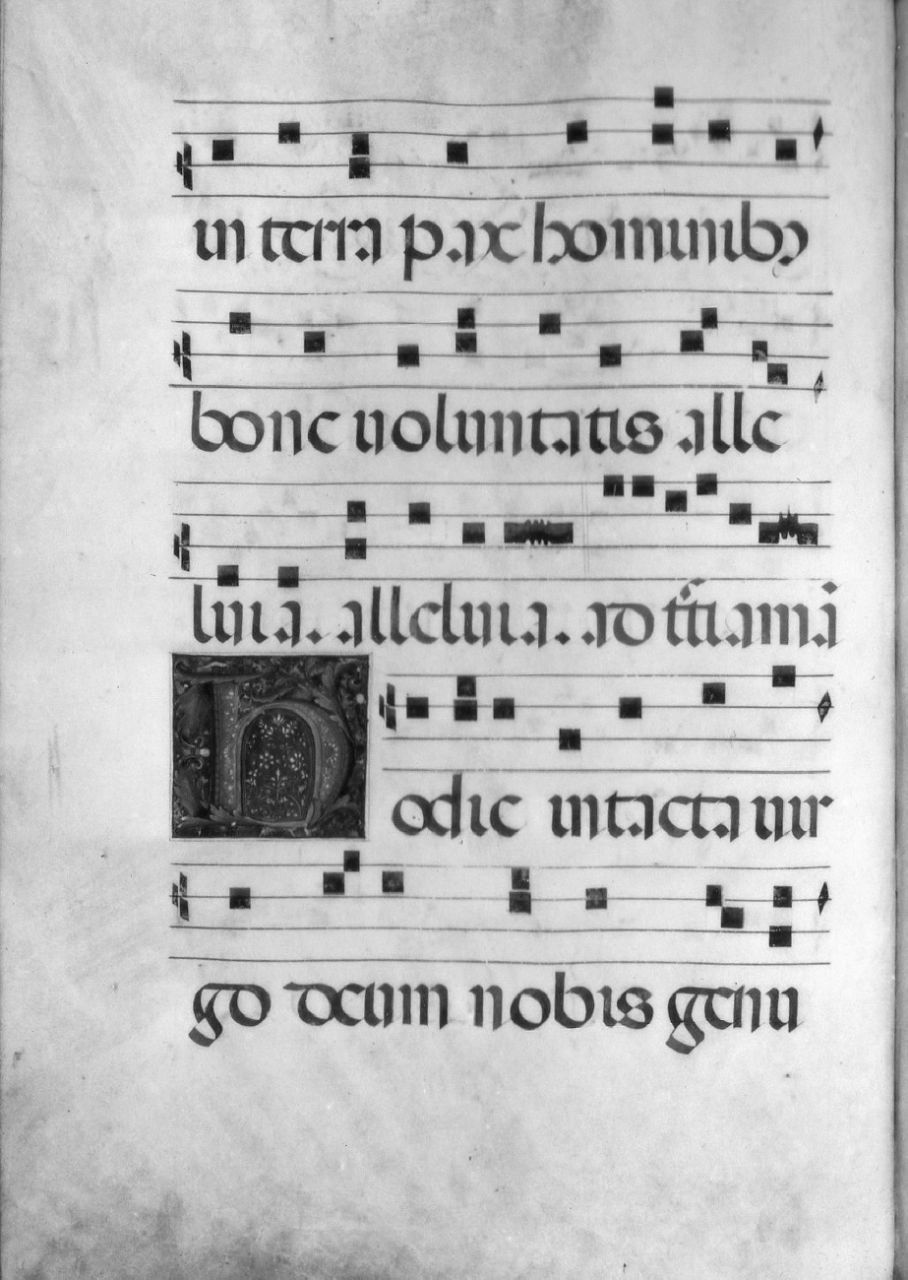 in terra pax hominibꝫ
bone uoluntatis alle
luia. alleluia. ad t͞tiam añ
Hodie intacta uir
go deum nobis genu